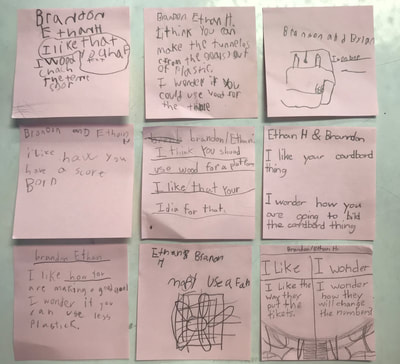 Brandon
EthanH
I like that
I wood
Brandon Ethan H.
I think you can
make the tunnels
out
of plastic.
I wonder if you
could use wood for
the
Brandon and Dylan
Brandon and Ethan H
i Like how you
have a score
Bord
brandon/Ethan
I think you should
use wood for a platform
I like that your
Idia for that.
Ethan H & Branndon
I like your cardbord
thing
I wonder how you
are going to bild
the cardbord thing
brandon Ethan
I like how you
are making a goal
I wonder if you
can use less
Plastick.
Ethan & Branon
H
mabY use a Fan
Brandon/Ethan H.
I Like
I Like the
way they
put the
tikets.
I wonder
I wonder
how they
will change
the numbers